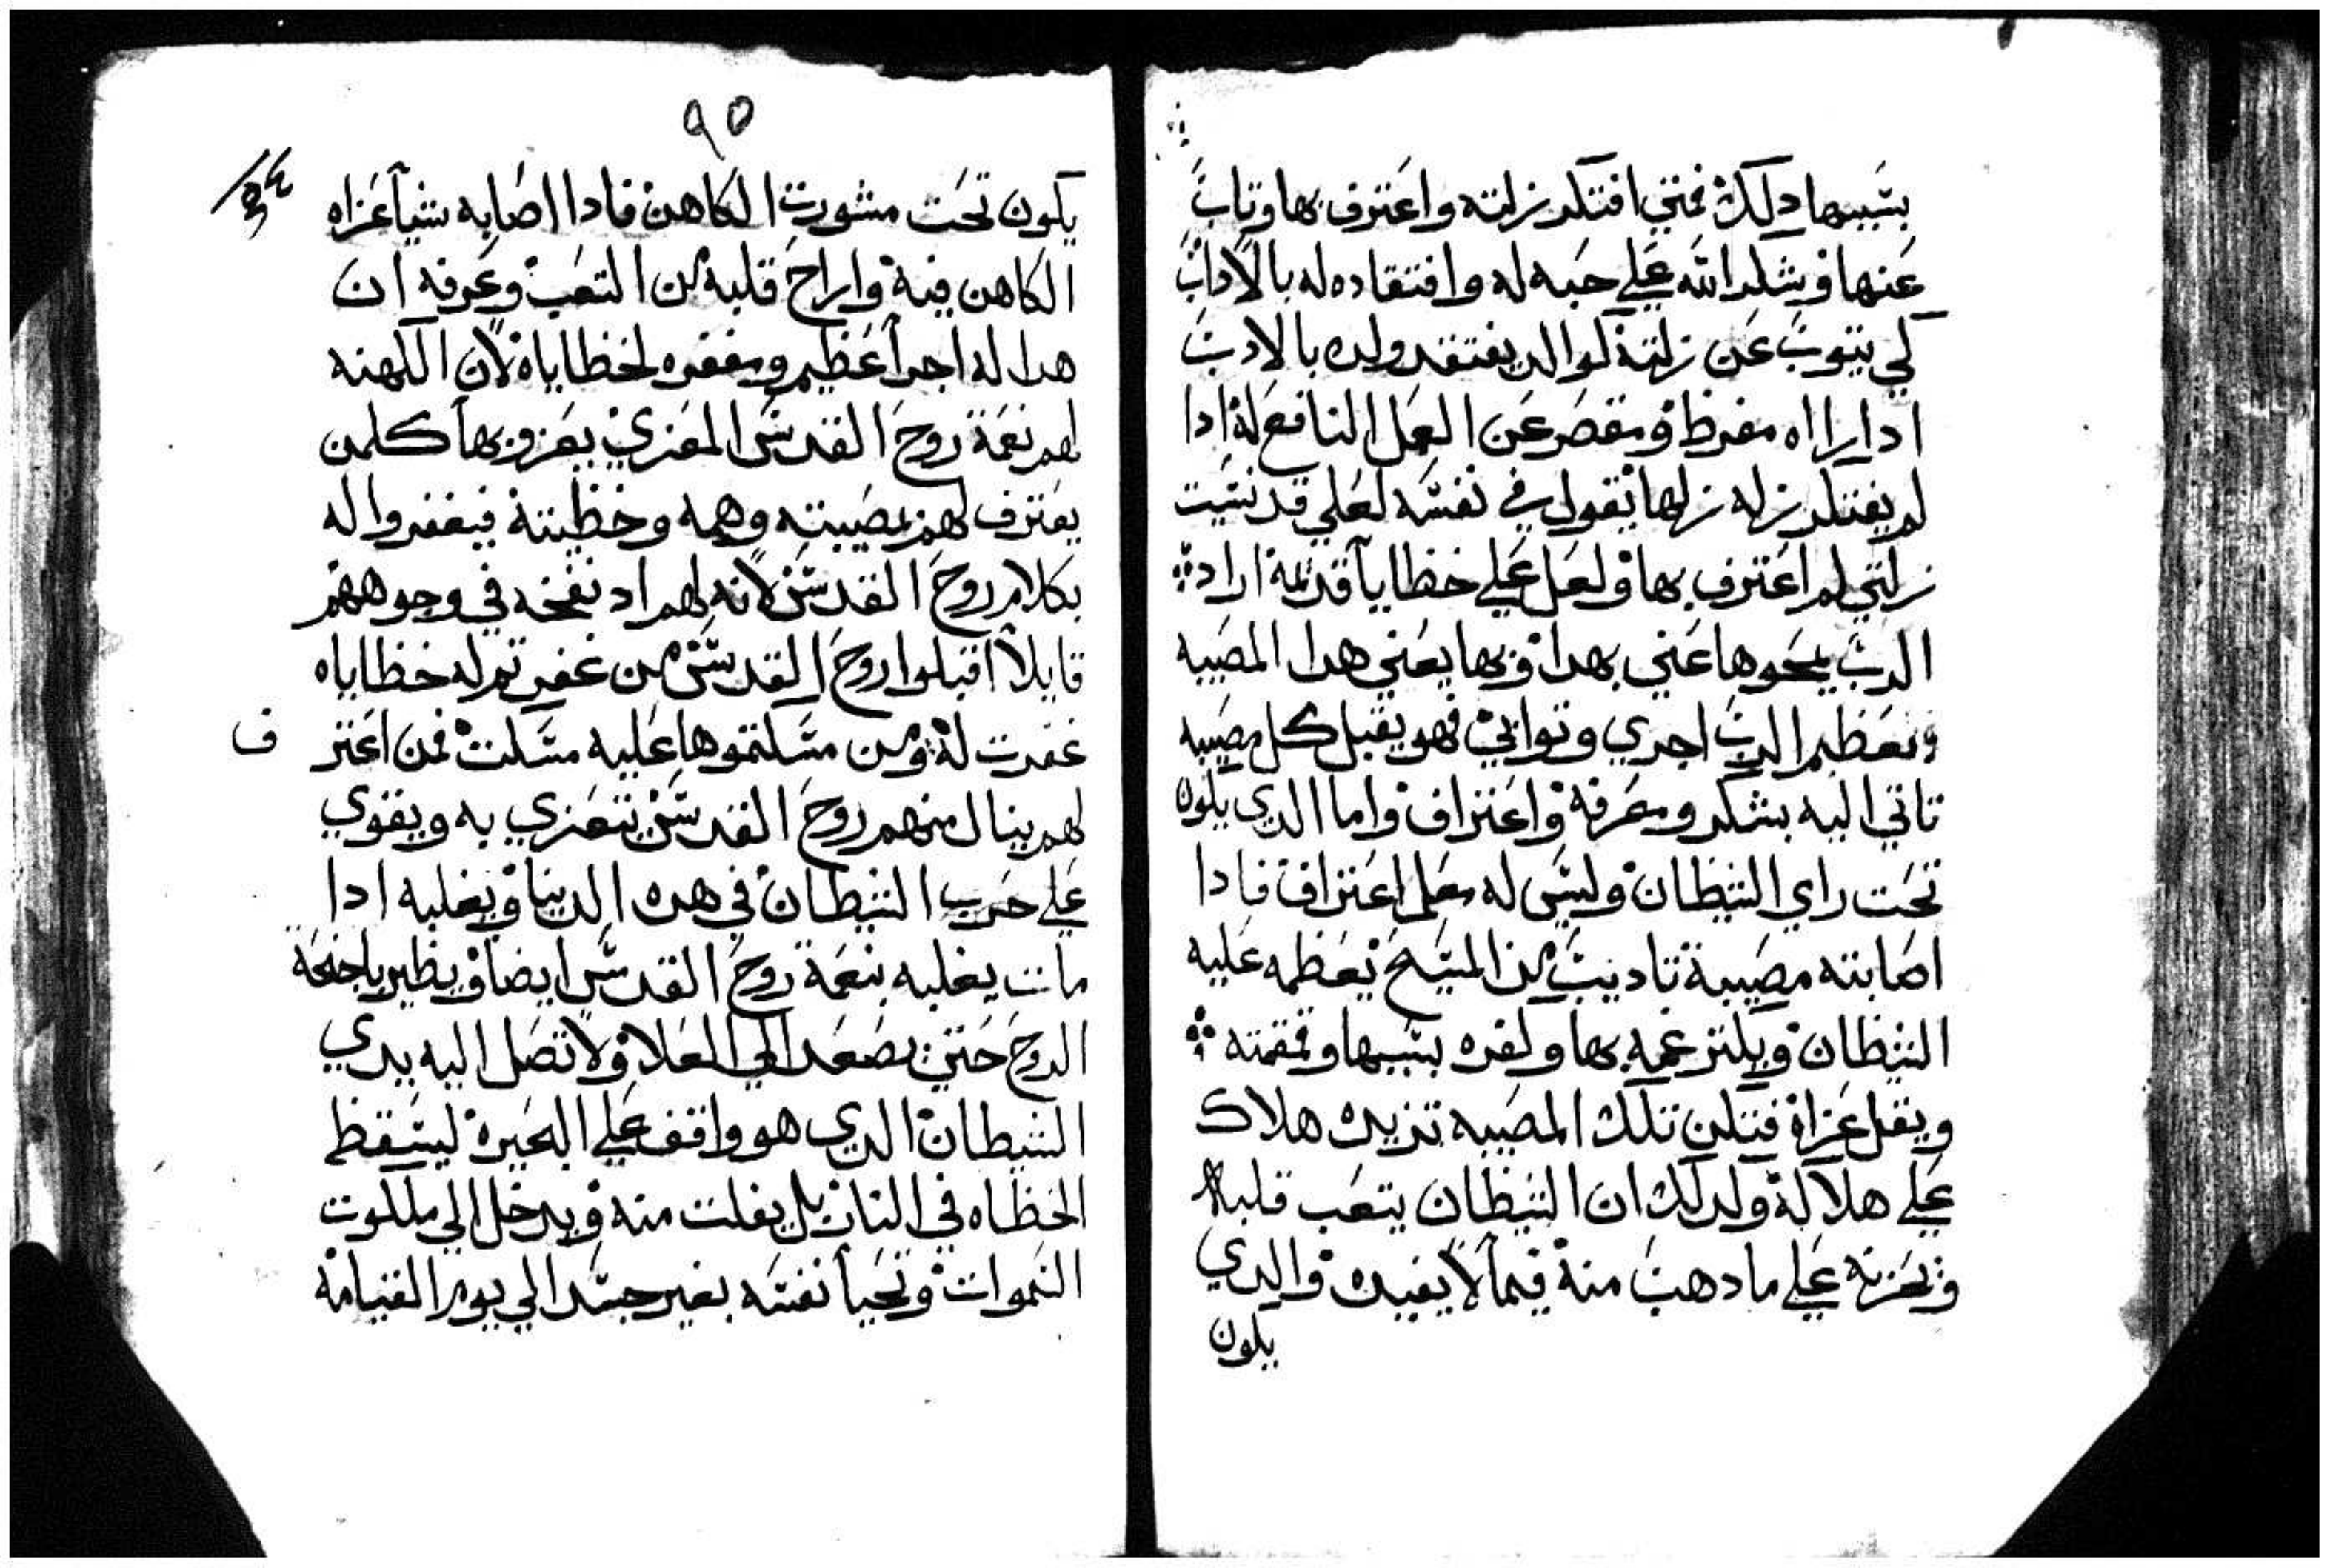 بسببها دلك فمتي افتكر زلته واعترف بها وتاب
عنها وشكر الله علي حبه له وافتقاده له بالاداب
كي يتوب عن زلته كوالد يفتقد ولده بالادب
ادا راه مفرط ومقصر عن العمل النافع له ادا
لم يفتكر زله زلها يقول في نفسه لعلي قد نسيت
زلتي لم اعترف بها ولعل علي خطايا قديمة اراد
الرب يمحوها عني بهدا وبها يعني هدا المصيبه
ويعظم الرب اجري وتوابي فهو يقبل كل مصيبه
تاتي اليه بشكر ومعرفة واعتراف واما الدي يكون
تحت راي الشيطان وليس له معلم اعتراف فادا
اصابته مصيبة تاديب من المسيح يعظمه عليه
الشيطان ويكتر غمه بها وكفره بسببها وقمقمته
ويقل عزاه فتكن تلك المصيبه تزيده هلاك
علي هلاكه ولدلك ان الشيطان يتعب قلبه
ويحزنه علي ما دهب منه فيما لا يفيده والدي
يكون
٩٥
يكون تحت مشورت الكاهن فادا اصابه شيآ عزاه
الكاهن فيه واراح قلبه من التعب وعرفه ان
هدا له اجرآ عظيم ومغفره لخطاياه لان الكهنه
لهم نعمة روح القدس المعزي يعزو بها كلمن
يعترف لهم بمصيبته وهمه وخطيته فيغفروا له
بكلام روح القدس لانه لهم اد نفخه في وجوههم
قايلاً اقبلوا روح القدس من غفرتم له خطاياه
غفرت له ومن مسكتموها عليه مسكت فمن اعتر ف
لهم ينال منهم روح القدس يتعزي به ويقوي
علي حرب الشيطان في هده الدنيا ويغلبه ادا
مات يغلبه بنعمة روح القدس ايضا ويطير باجنحة
الروح حتي يصعد الي العلا ولا تصل اليه يدي
الشيطان الدي هو واقف علي البحيرة ليسقط
الخطاه في النار بل يفلت منه ويدخل الي ملكوت
السموات وتحيا نفسه بغير جسد الي يوم القيامة